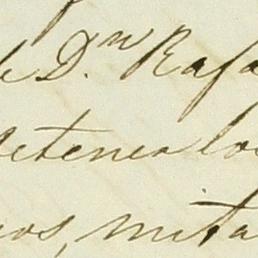 de D.ⁿ Rafa
detener los
nos, mita